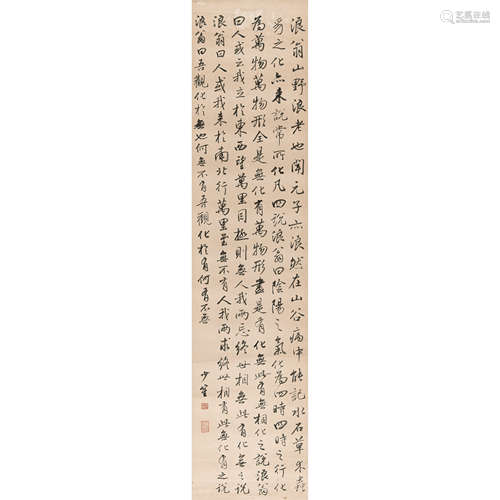 浪翁山野浪老也聞元子亦浪然在山谷病中能記水石草木蟲
豸之化亦來說常所化凡四說浪翁曰陰陽之氣化為四時四時之行化
為萬物萬物形全是無化有萬物形盡是有化無此有無相化之說浪翁
曰人或云我立於東西望萬里目極則無人我兩忘終毋相無此有化無之說
浪翁曰人或我來於南北行萬里豈無不有人我兩求終此相有此無化有之說
浪翁曰吾觀化於無也何無不有吾觀化於有何有不無
少笙
艺典中国